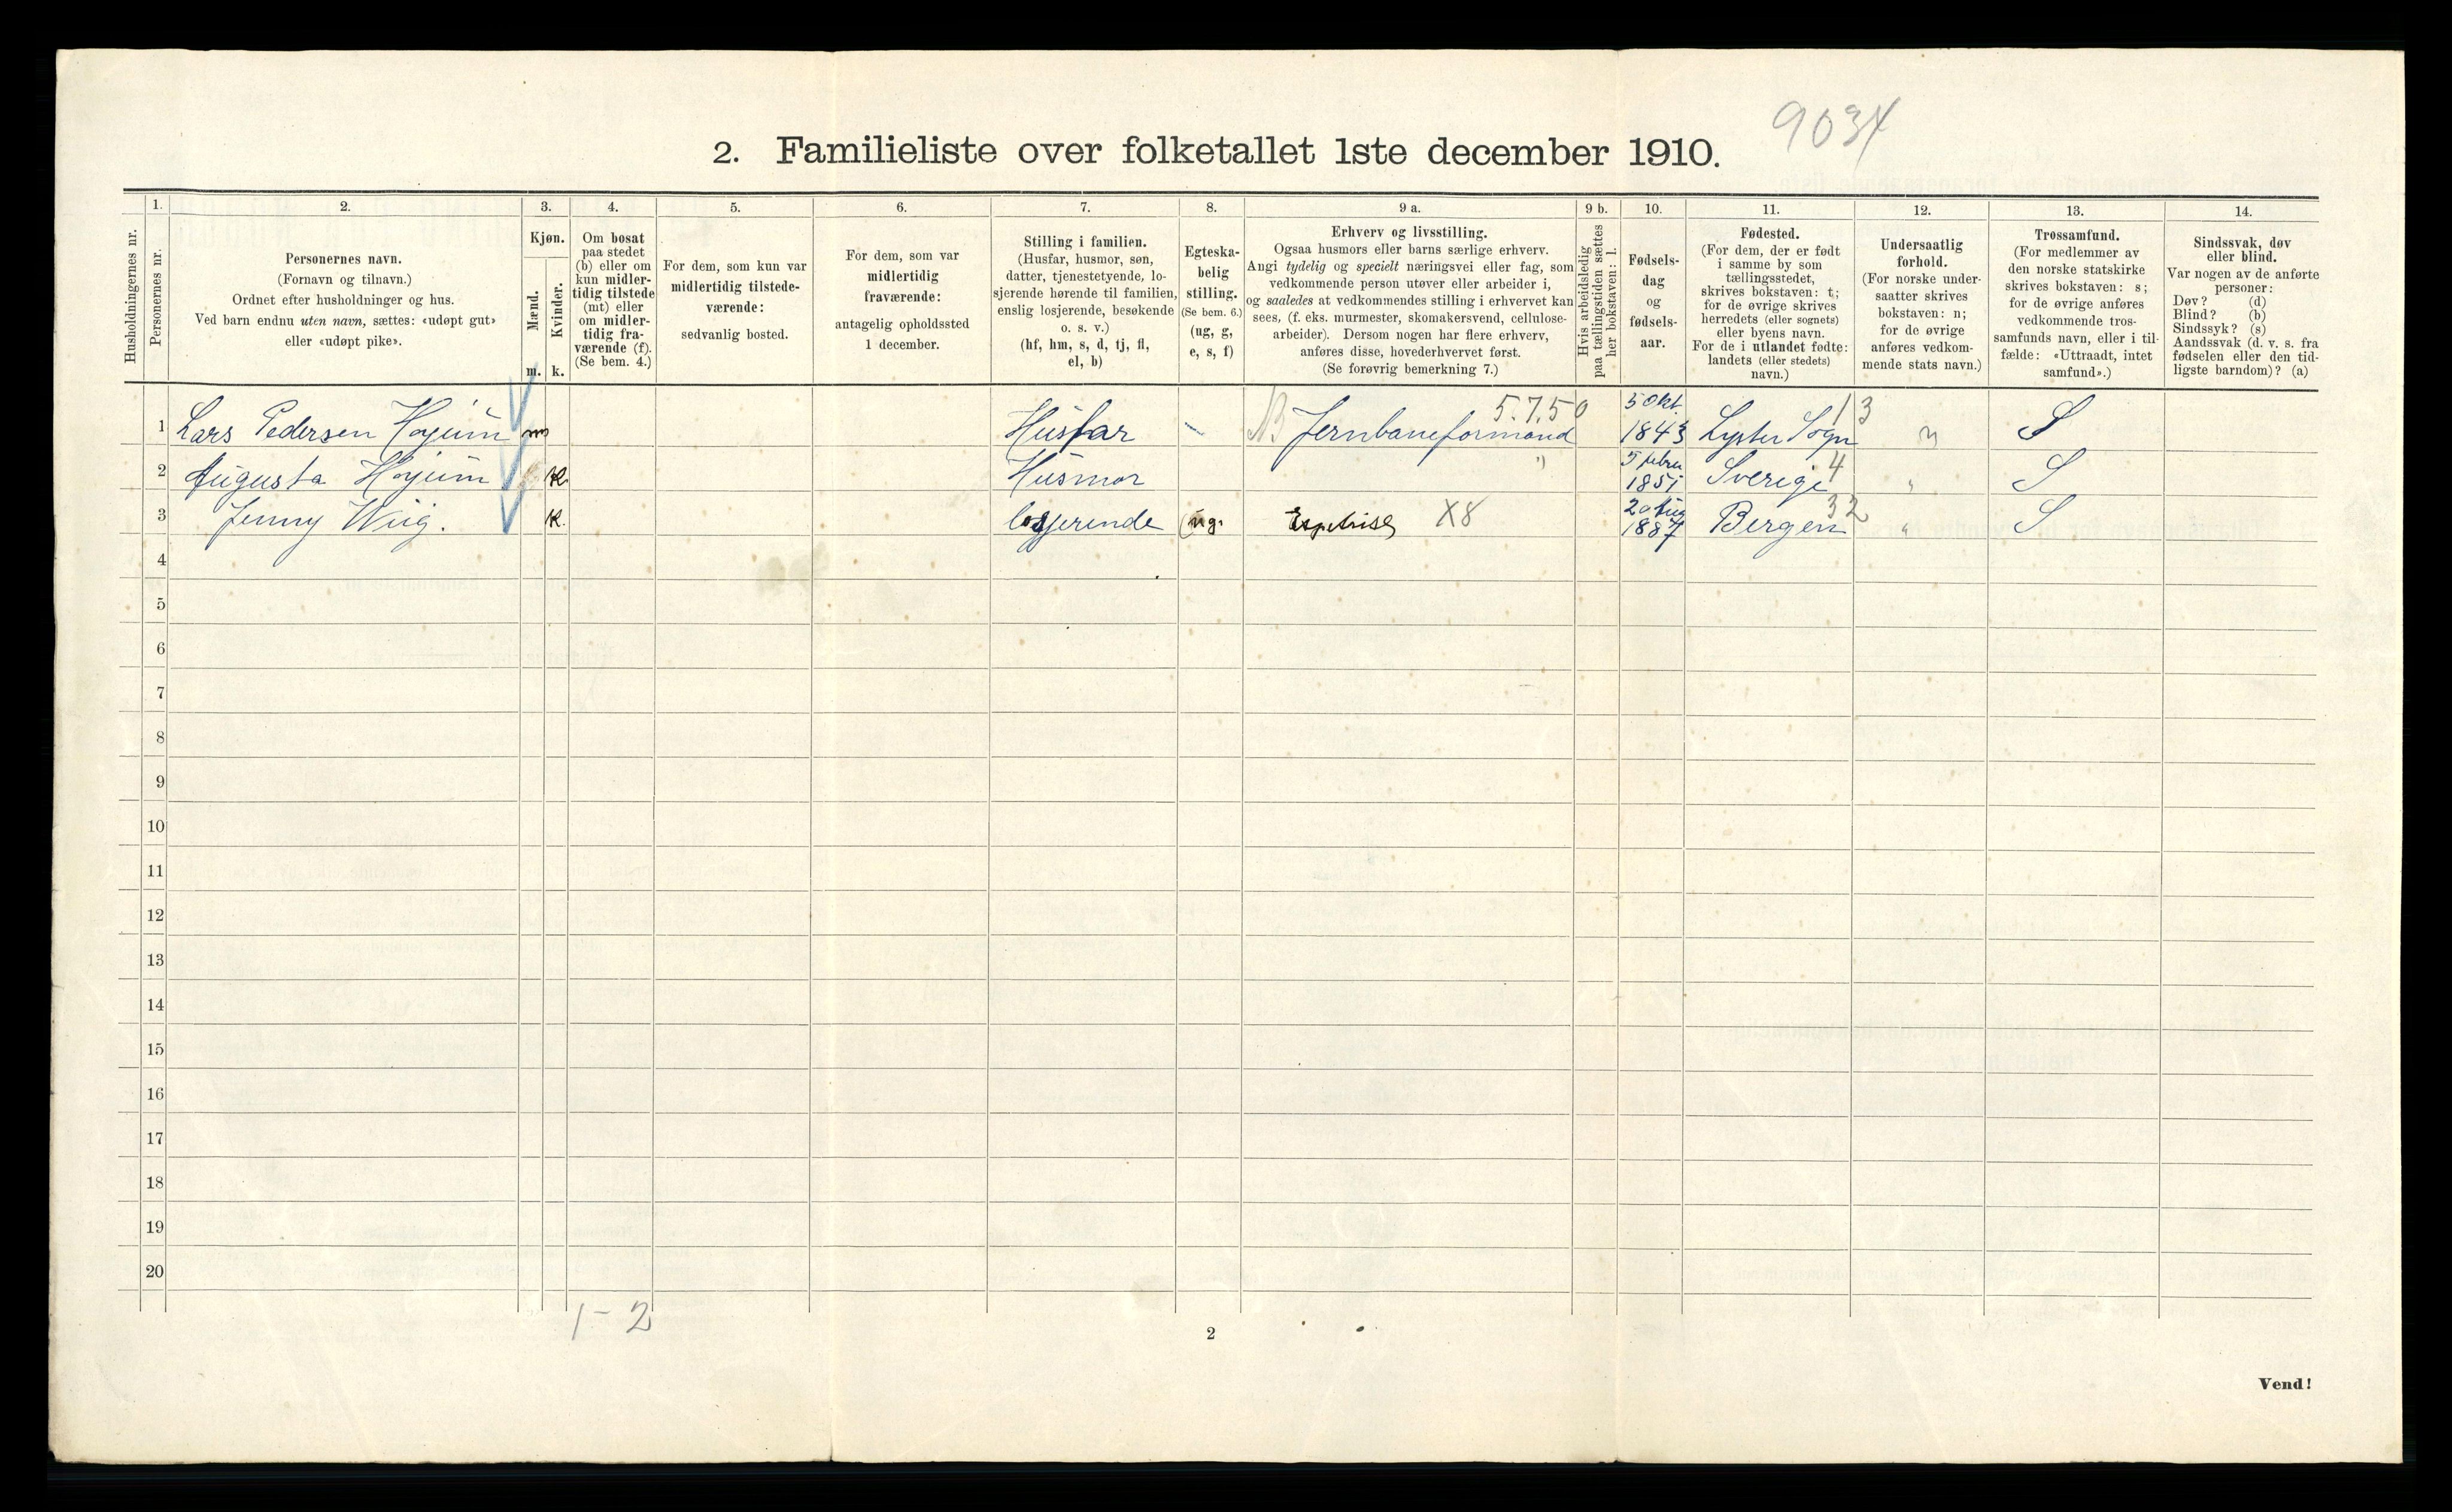 9034
2. Familieliste over folketallet 1ste december 1910.
Husholdningernes nr.
1.
Personernes nr.
2.
Personernes navn.
(Fornavn og tilnavn.)
Ordnet efter husholdninger og hus.
Ved barn endnu uten navn, sættes: «udøpt gut»
eller «udøpt pike».
3.
Kjøn.
Mænd.
Kvinder.
m. k.
4.
Om bosat
paa stedet
(b) eller om
kun midler-
tidig tilstede
(mt) eller
om midler-
tidig fra-
værende (f).
(Se bem. 4.)
5.
For dem, som kun var
midlertidig tilstede-
værende:
sedvanlig bosted.
6.
For dem, som var
midlertidig
fraværende:
antagelig opholdssted
1 december.
7.
Stilling i familien.
(Husfar, husmor, søn,
datter, tjenestetyende, lo-
sjerende hørende til familien,
enslig losjerende, besøkende
o. s. v.)
(hf, hm, s, d, tj, fl,
el, b)
8.
Egteska-
belig
stilling.
(Se bem. 6.)
(ug, g,
e, s, f)
9 a.
Erhverv og livsstilling.
Ogsaa husmors eller barns særlige erhverv.
Angi tydelig og specielt næringsvei eller fag, som
vedkommende person utøver eller arbeider i,
og saaledes at vedkommendes stilling i erhvervet kan
sees, (f. eks. murmester, skomakersvend, cellulose-
arbeider). Dersom nogen har flere erhverv,
anføres disse, hovederhvervet først.
(Se forøvrig bemerkning 7.)
9 b.
Hvis arbeidsledig
paa tællingstiden sættes
her bokstaven: l.
10.
Fødsels-
dag
og
fødsels-
aar.
11.
Fødested.
(For dem, der er født
i samme by som
tællingsstedet,
skrives bokstaven: t;
for de øvrige skrives
herredets (eller sognets)
eller byens navn.
For de i utlandet fødte:
landets (eller stedets)
navn.)
12.
Undersaatlig
forhold.
(For norske under-
saatter skrives
bokstaven: n;
for de øvrige
anføres vedkom-
mende stats navn.)
13.
Trossamfund.
(For medlemmer av
den norske statskirke
skrives bokstaven: s;
for de øvrige anføres
vedkommende tros-
samfunds navn, eller i til-
fælde: «Uttraadt, intet
samfund».)
14.
Sindssvak, døv
eller blind.
Var nogen av de anførte
personer:
Døv? (d)
Blind? (b)
Sindssyk? (s)
Aandssvak (d. v. s. fra
fødselen eller den tid-
ligste barndom)? (a)
1 Lars Pedersen Høyum m Husfar Jernbaneformand 5.7.50 5 Okt. 1843 Lyster Sogn 13 n S
2 Augusta Høyum K Husmor " 5 febru 1851 Sverige 4 " S
3 Jenny Wiig. K. losjerende ug. X8 20 Aug 1887 Bergen 32 " S
4
5
6
7
8
9
10
11
12
13
14
15
16
17
18
19
20
1 - 2
2
Vend!